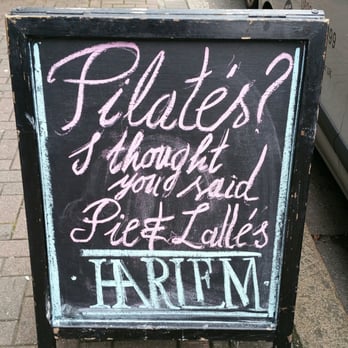 Pilatés?
I thought
you said
Pie & Lattés
HARLEM